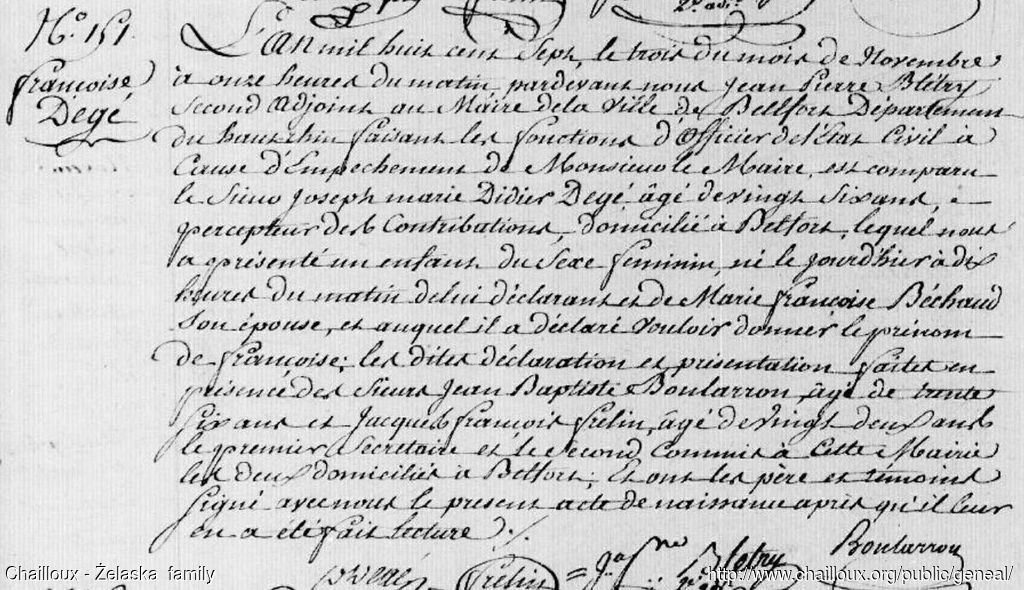 No. 151.
françoise
Degé
L'An mil huit cent Sept, le trois du mois de Novembre
à onze heures du matin, pardevant nous Jean Pierre Blétry
Second Adjoint au Maire de la Ville de Bellfort Département
du haut rhin faisant les fonctions d'Officier de l'état Civil à
Cause d'Empechement de Monsieur le Maire, est comparu
le Sieur Joseph marie Didier Degé, âgé de vingt Six ans,
percepteur des Contributions, domicilié à Belfort, lequel nous
a présenté un enfant du Sexe feminin, né le jourd'hier à dix
heures du matin de lui déclarant et de Marie françoise Béchaud
Son épouse, et auquel il a déclaré Vouloir donner le prénom
de françoise; les dites déclaration et présentation faites en
présence des Sieurs Jean Baptiste Boularron, âgé de trente
Six ans et Jacques françois frélin, âgé de Vingt deux ans
le premier Secretaire et le Second Commis à Cette Mairie
les deux domiciliés à Belfort; Et ont les père et témoins
Signé avec nous le present acte de naissance après qu'il leur
en a été fait lecture ./.
frélin = Blétry Boularron
Chailloux - Żelaska family
http://www.chailloux.org/public/geneal/